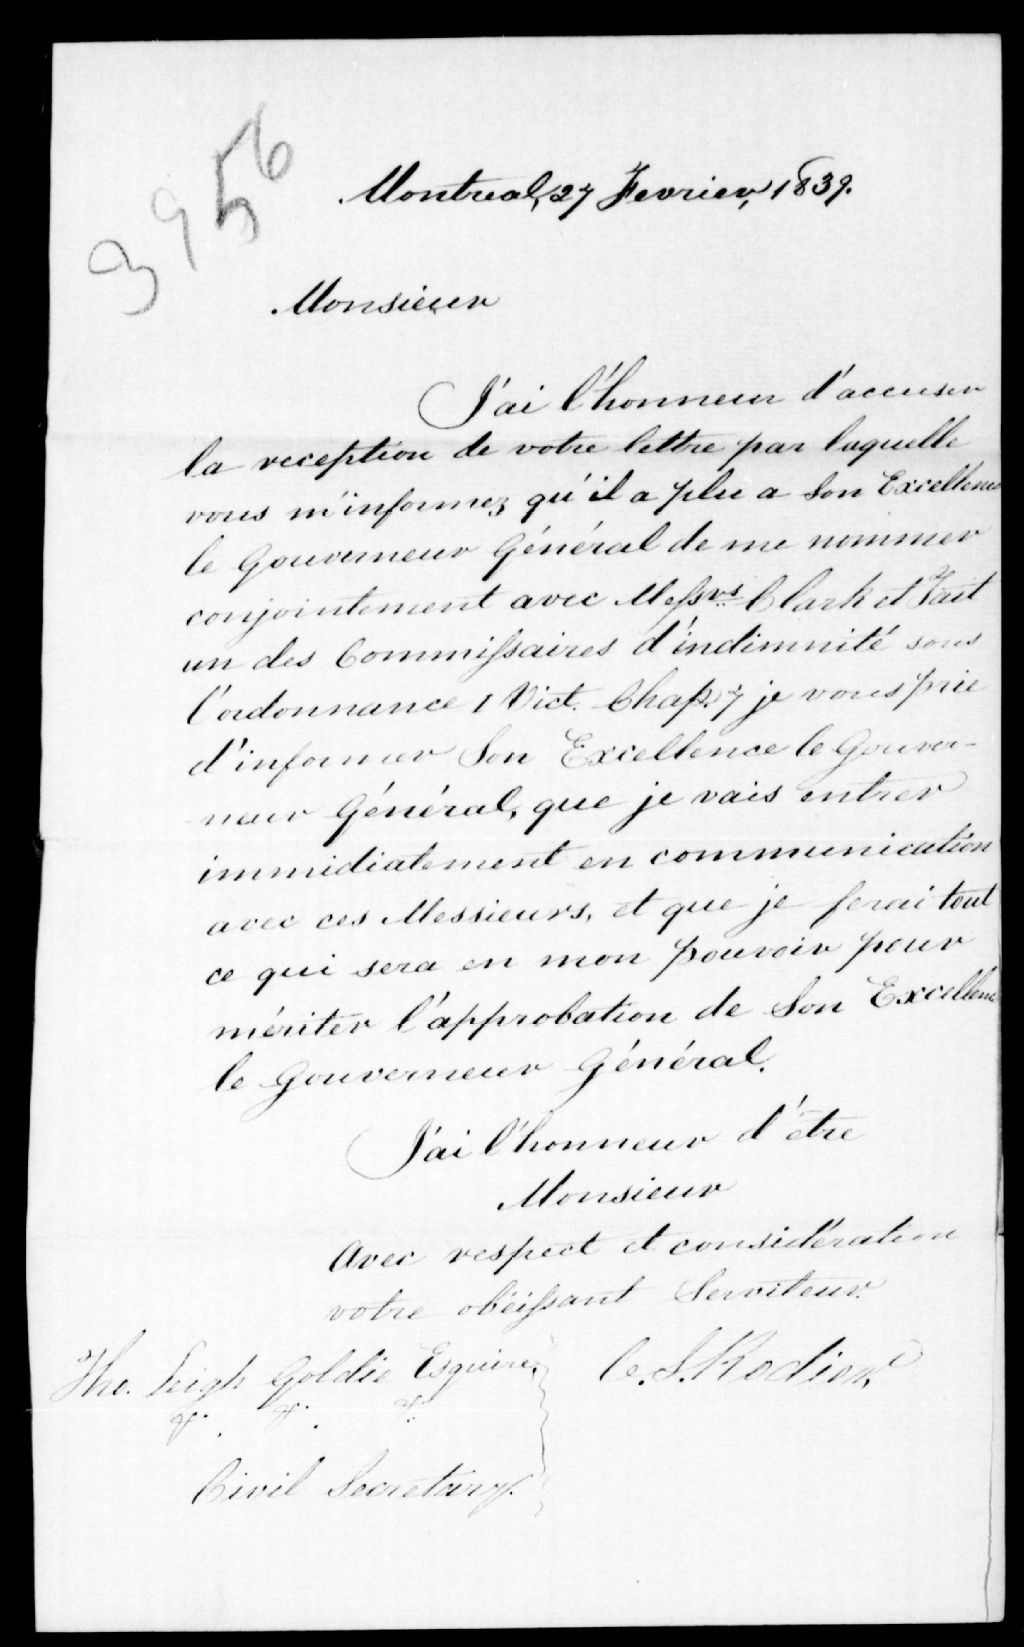 3956
Montreal, 27 Fevrier, 1839.
Monsieur
J'ai l'honneur d'accuser
la reception de votre lettre par laquelle
vous m'informez qu'il a plu a Son Excellence
le Gouverneur Général de me nommer
conjointement avec Messrs Clark et Tait
un des Commissaires d'indimnité sous
l'ordonnance 1 Vict. Chap. 7 je vous prie
d'informer Son Excellence le Gouver-
neur Général, que je vais entrer
immidiatement en communication
avec ces Messieurs, et que je ferai tout
ce qui sera en mon pouvoir pour
mériter l'approbation de Son Excellence
le Gouverneur Général.
J'ai l'honneur d'être
Monsieur
Avec respect et considération
votre obéissant Serviteur.
C. S. Rodier,
The. Leigh Goldie Esquire,
Civil Secretary.